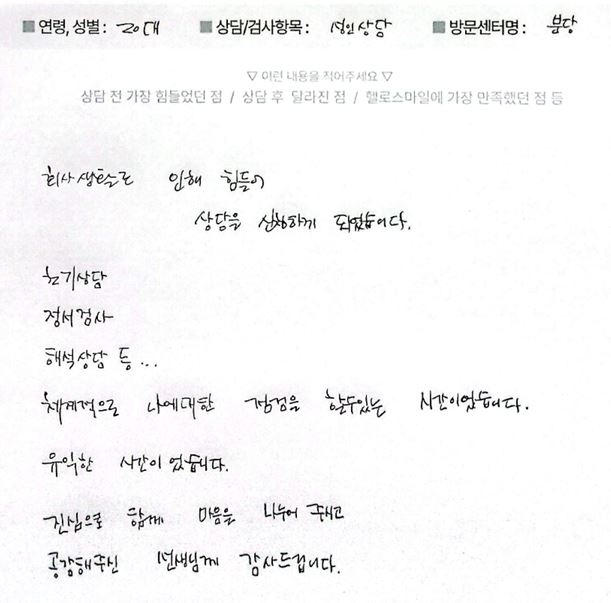 ■ 연령, 성별 : 20대 ■ 상담/검사항목 : 성인상담 ■ 방문센터명 : 분당
▽ 이런 내용을 적어주세요 ▽
상담 전 가장 힘들었던 점 / 상담 후 달라진 점 / 헬로스마일에 가장 만족했던 점 등
회사생활로 인해 힘들어
상담을 신청하게 되었습니다.
초기상담
정서검사
해석상담 등...
체계적으로 나에대한 점검을 할수있는 시간이었습니다.
유익한 시간이었습니다.
진심으로 함께 마음을 나누어 주시고
공감해주신 선생님께 감사드립니다.